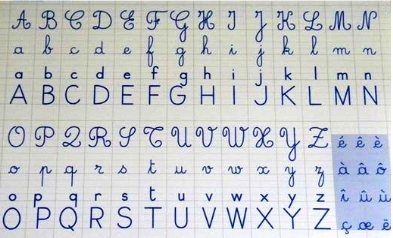 A B C D E F G H I J K L M N
a b c d e f g h i j k l m n
a b c d e f g h i j k l m n
A B C D E F G H I J K L M N
O P Q R S T U V W X Y Z é ê è
o p q r s t u v w x y z à â ô
o p q r s t u v w x y z î ù ù
O P Q R S T U V W X Y Z ç œ ë